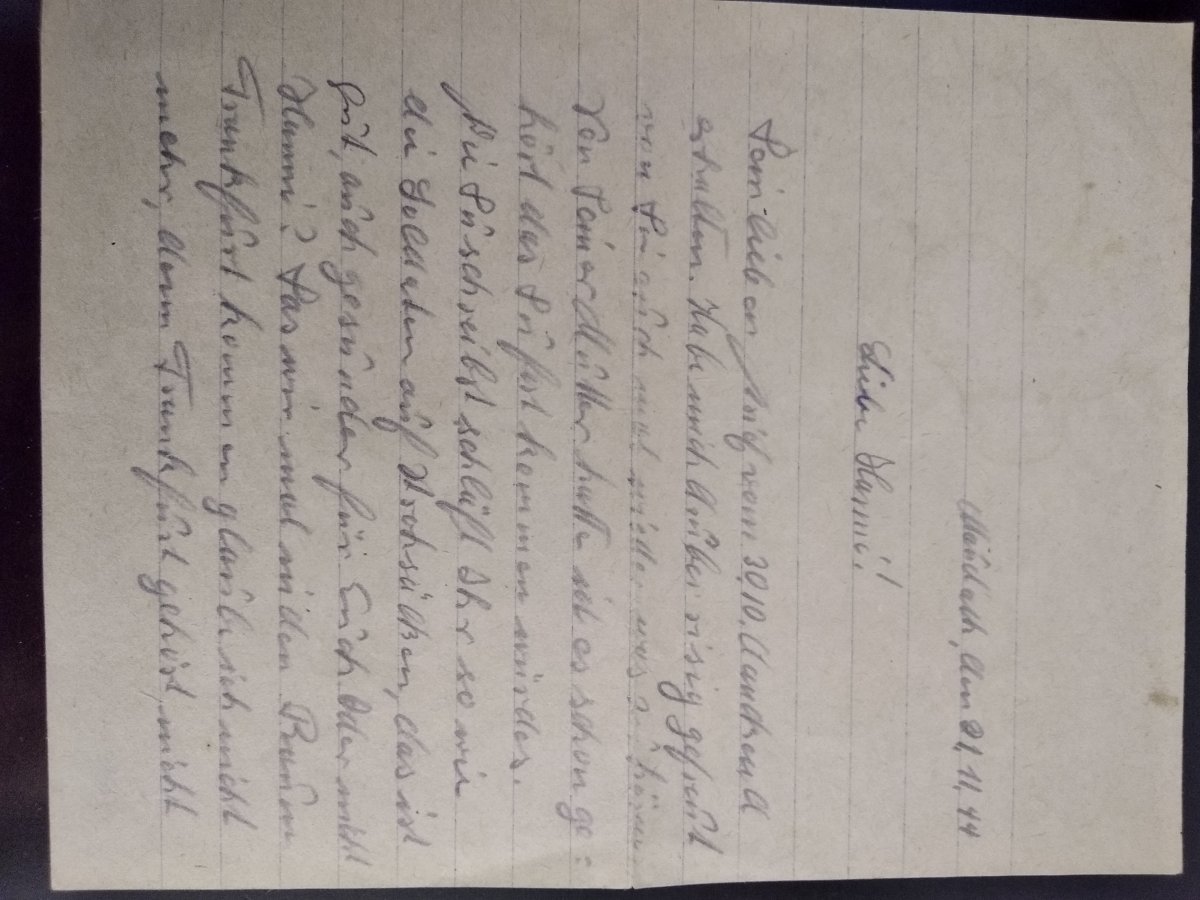 den 21.11.44
Liebe Hanni!
Dein lieben Brief vom 30.10. dankend
erhalten. Habe mich darüber riesig gefreut
von Dir auch mal wieder was zu hören.
Von Deiner Mutter hatte ich es schon ge=
hört das Du fort kommen würdes.
Wie Du schreibst schläft Ihr so wie
die Soldaten auf Strohsäcken, das ist
gut, auch gesünder für Euch oder nicht
Hanni? Das wir mal in den Raum
Frankfurt kommen glaube ich nicht
mehr, denn Frankfurt gehört nicht